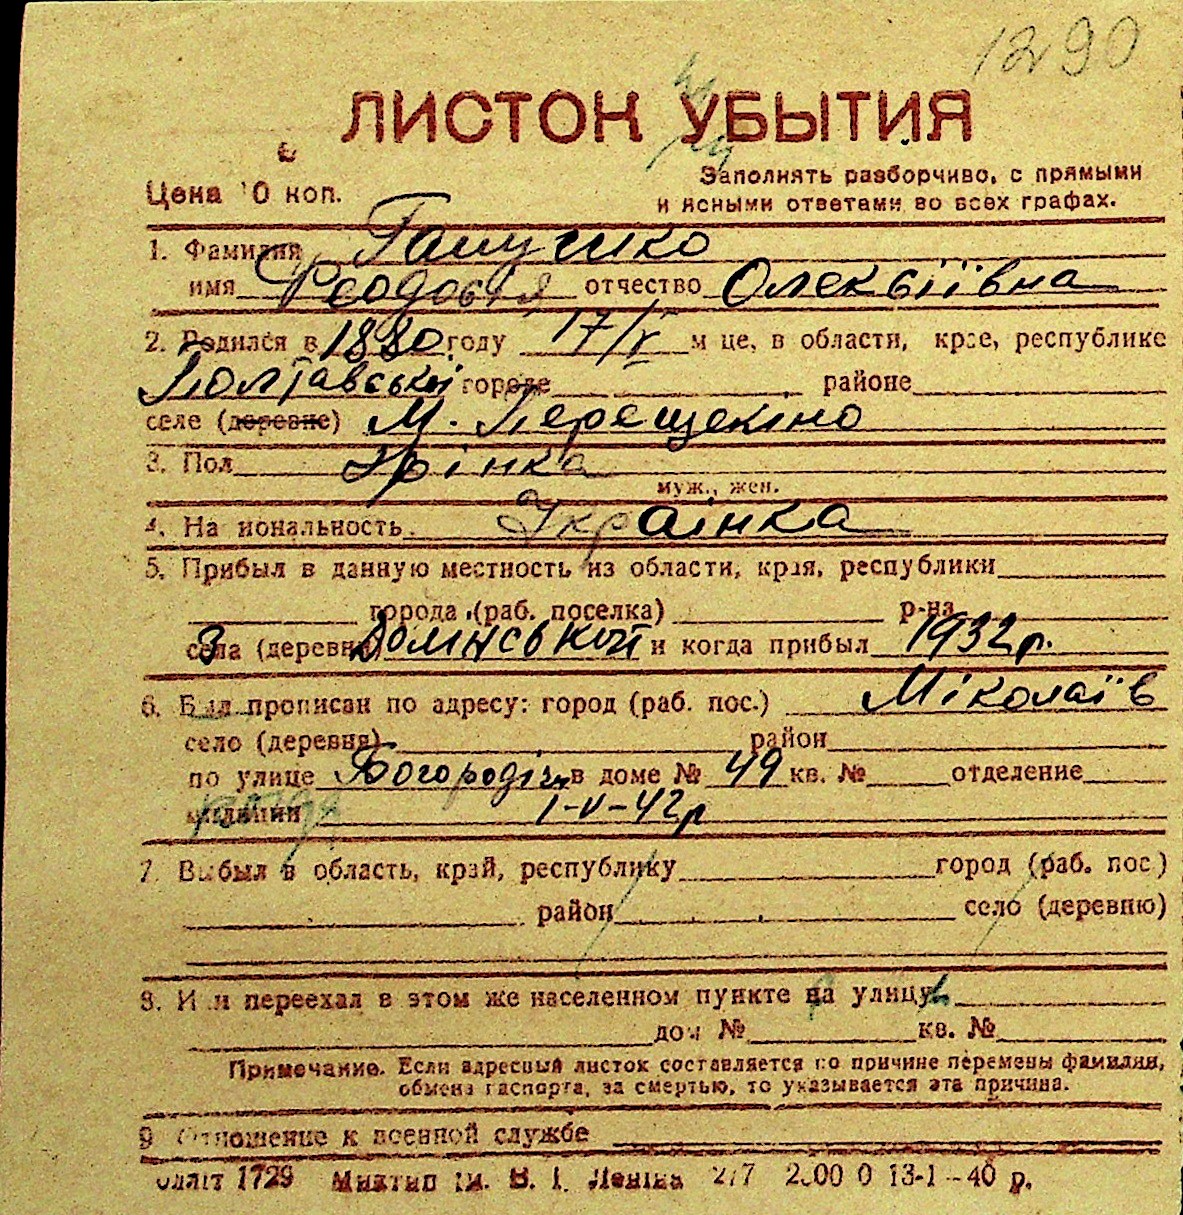 1290
ЛИСТОК УБЫТИЯ
Цена 10 коп.
Заполнять разборчиво, с прямыми
и ясными ответами во всех графах.
1. Фамилия Галушко
имя Феодосія отчество Олексіївна
2. Родился в 1880 году 17/V м це, в области, крае, республике
Полтавській городе районе
селе (деревне) М. Перещепіно
3. Пол Жінка
муж., жен.
4. На иональность Українка
5. Прибыл в данную местность из области, края, республики
города (раб. поселка) р-на
села (деревни) и когда прибыл 1932 р.
6. Был прописан по адресу: город (раб. пос.) Міколаїв
село (деревня) район
по улице в доме № 49 кв. № отделение
милиции 1-V-42 р
7. Выбыл в область, край, республику город (раб. пос)
район село (деревню)
8. Или переехал в этом же населенном пункте на улицу
дом № кв. №
Примечание. Если адресный листок составляется по причине перемены фамилии,
обмена паспорта, за смертью, то указывается эта причина.
9 Отношение к военной службе
1729 Миктип ім. В. І. Леніна 277 13-1-40 р.